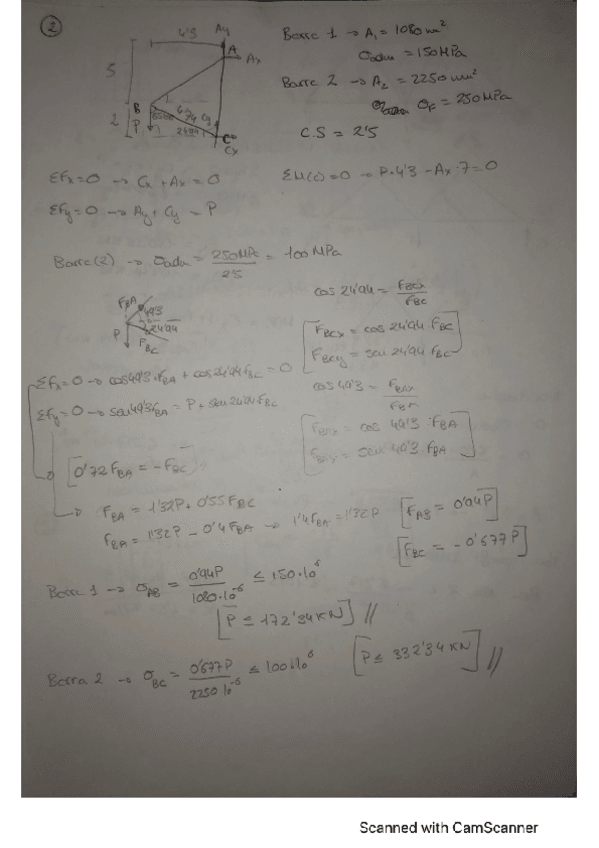 ②
4'3
Ay
A
Ax
5
B
2
P
4'74
Cy
C
Cx
Barre 1 → A₁ = 1080 mm²
σadm = 150 MPa
Barre 2 → A₂ = 2250 mm²
σF = 250 MPa
C.S = 2'5
ΣFx=0 → Cx + Ax = 0
ΣM(c)=0 → P·4'3 - Ax·7=0
ΣFy=0 → Ay + Cy = P
Barre(2) → σadm = 250MPa / 2'5 = 100 MPa
FBA
49'3
P
24'94
FBC
cos 24'94 = FBCx / FBC
[FBCx = cos 24'94 FBC
FBCy = sen 24'94 FBC]
ΣFx=0 → cos49'3·FBA + cos24'94 FBC = 0
ΣFy=0 → sen49'3 FBA = P + sen 24'94 FBC
cos 49'3 = FBAx / FBA
[FBAx = cos 49'3 FBA
FBAy = sen 49'3 FBA]
[0'72 FBA = - FBC]
FBA = 1'32P + 0'55 FBC
FBA = 1'32P - 0'4 FBA → 1'4 FBA = 1'32P [FAB = 0'94P]
[FBC = -0'677P]
Barre 1 → σAB = 0'94P / 1080·10⁻⁶ ≤ 150·10⁶
[P ≤ 172'34 KN] //
Barra 2 → σBC = 0'677P / 2250·10⁻⁶ ≤ 100·10⁶ [P ≤ 332'34 KN] //
Scanned with CamScanner